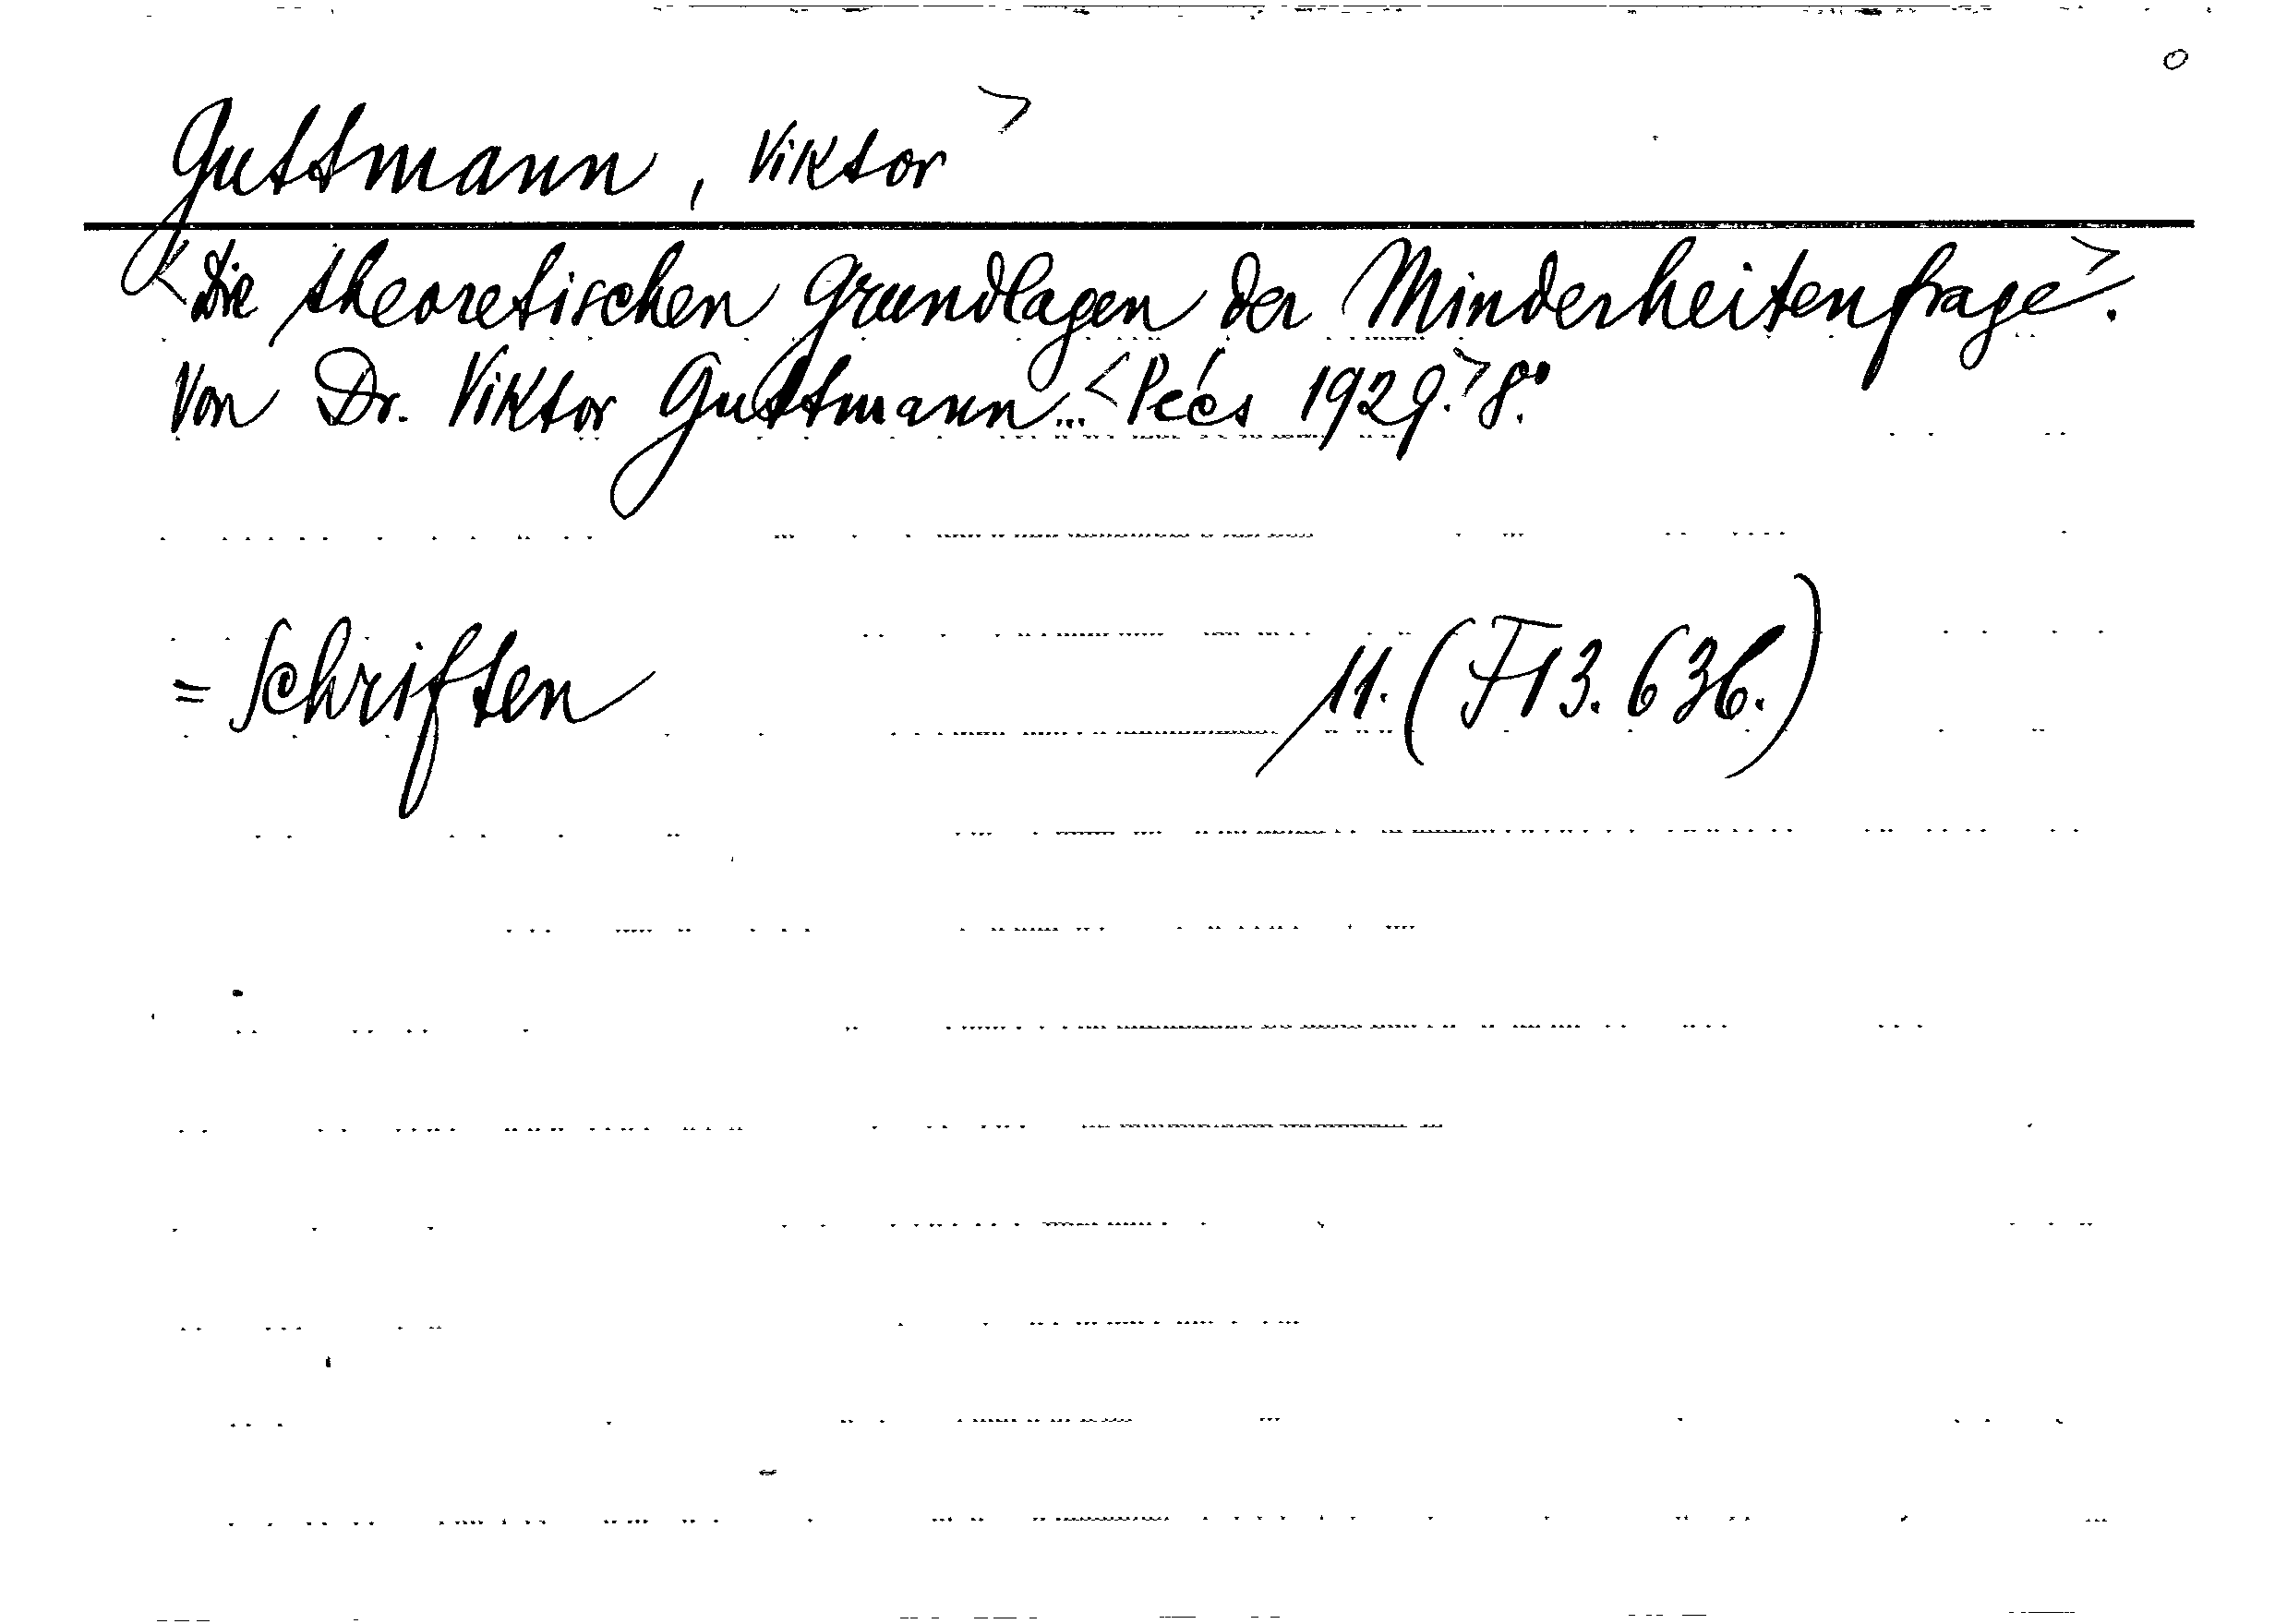 Guttmann, Viktor>
<Die theoretischen Grundlagen der Minderheitenfrage>.
Von Dr. Viktor Guttmann... <Pécs 1929.> 8°.
= Schriften 11. (F13.636.)